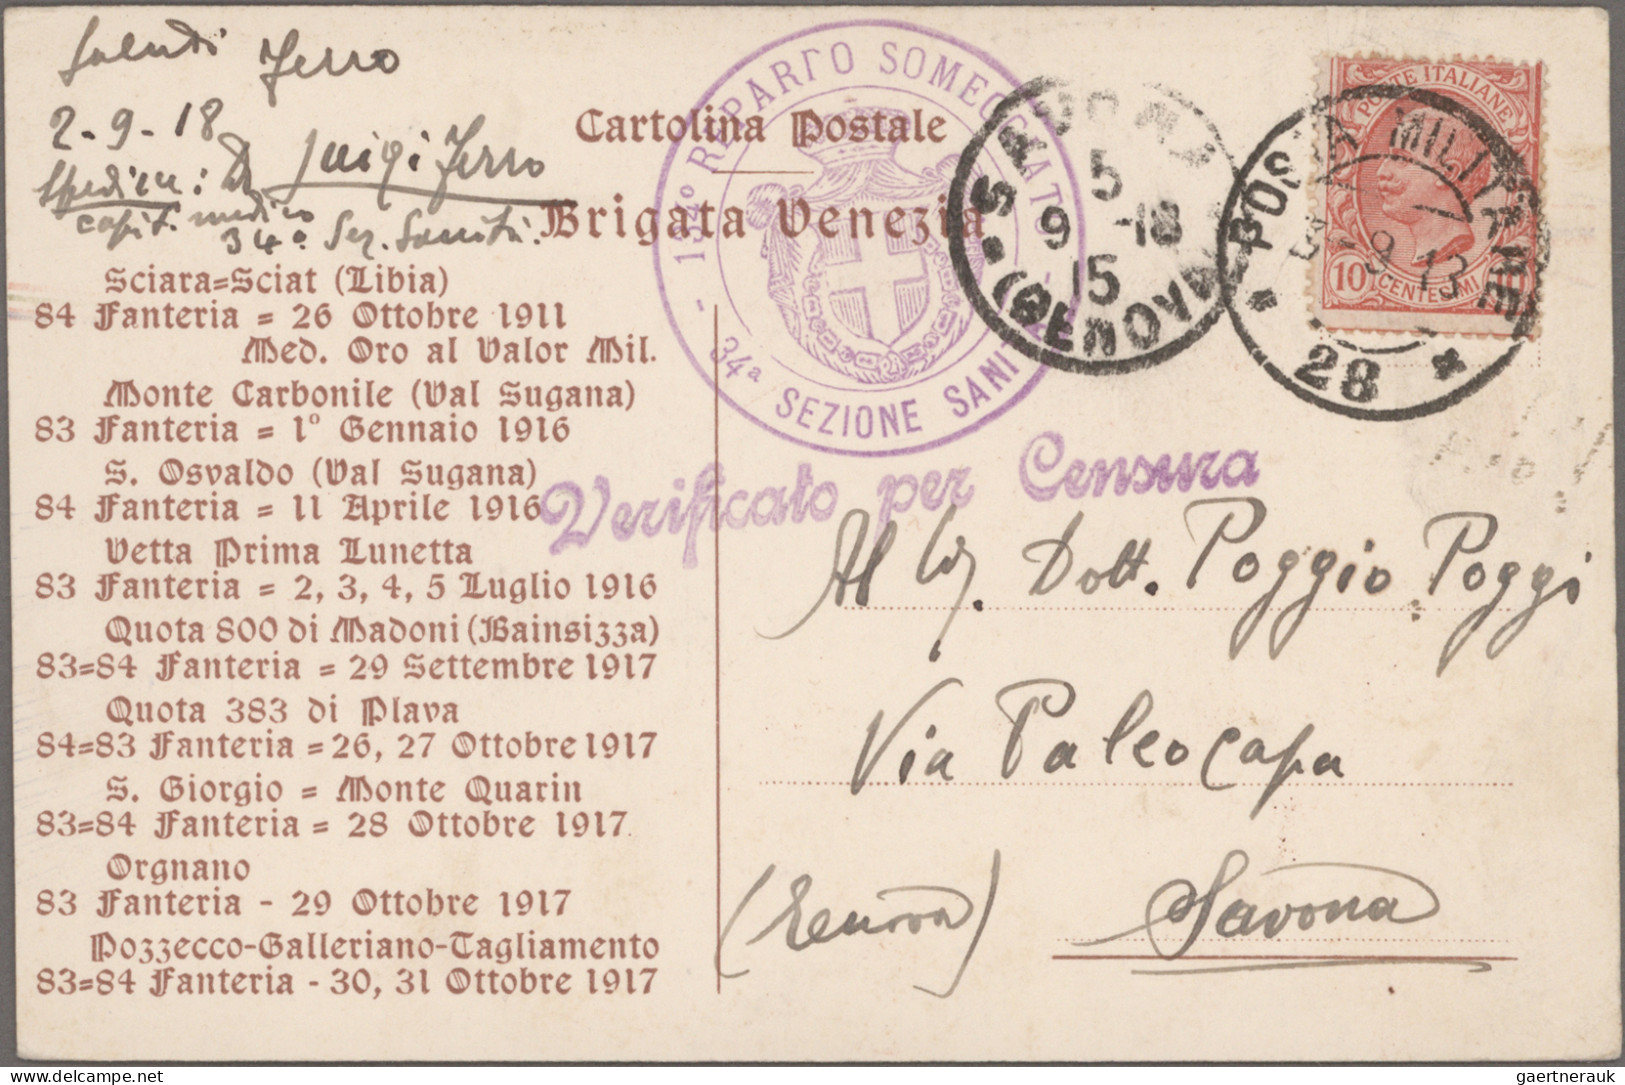 Saluti Ferro
2-9-18
Spedisce: Dr Luigi Ferro
capit. medico
34ª Sez. Sanità
Cartolina Postale
Brigata Venezia
134º REPARTO SOMEGGIATO
34ª SEZIONE SANITÀ
SAVONA
5
9 -18
15
(GENOVA)
POSTA MILITARE
28
POSTE ITALIANE
10 CENTESIMI 10
Verificato per Censura
Sciara=Sciat (Libia)
84 Fanteria = 26 Ottobre 1911
Med. Oro al Valor Mil.
Monte Carbonile (Val Sugana)
83 Fanteria = 1º Gennaio 1916
S. Osvaldo (Val Sugana)
84 Fanteria = 11 Aprile 1916
Vetta Prima Lunetta
83 Fanteria = 2, 3, 4, 5 Luglio 1916
Quota 800 di Madoni (Bainsizza)
83=84 Fanteria = 29 Settembre 1917
Quota 383 di Plava
84=83 Fanteria = 26, 27 Ottobre 1917
S. Giorgio = Monte Quarin
83=84 Fanteria = 28 Ottobre 1917
Orgnano
83 Fanteria - 29 Ottobre 1917
Pozzecco-Galleriano-Tagliamento
83=84 Fanteria - 30, 31 Ottobre 1917
Al Sig. Dott. Poggio Poggi
Via Paleocapa
(Genova) Savona
gaertnerauk